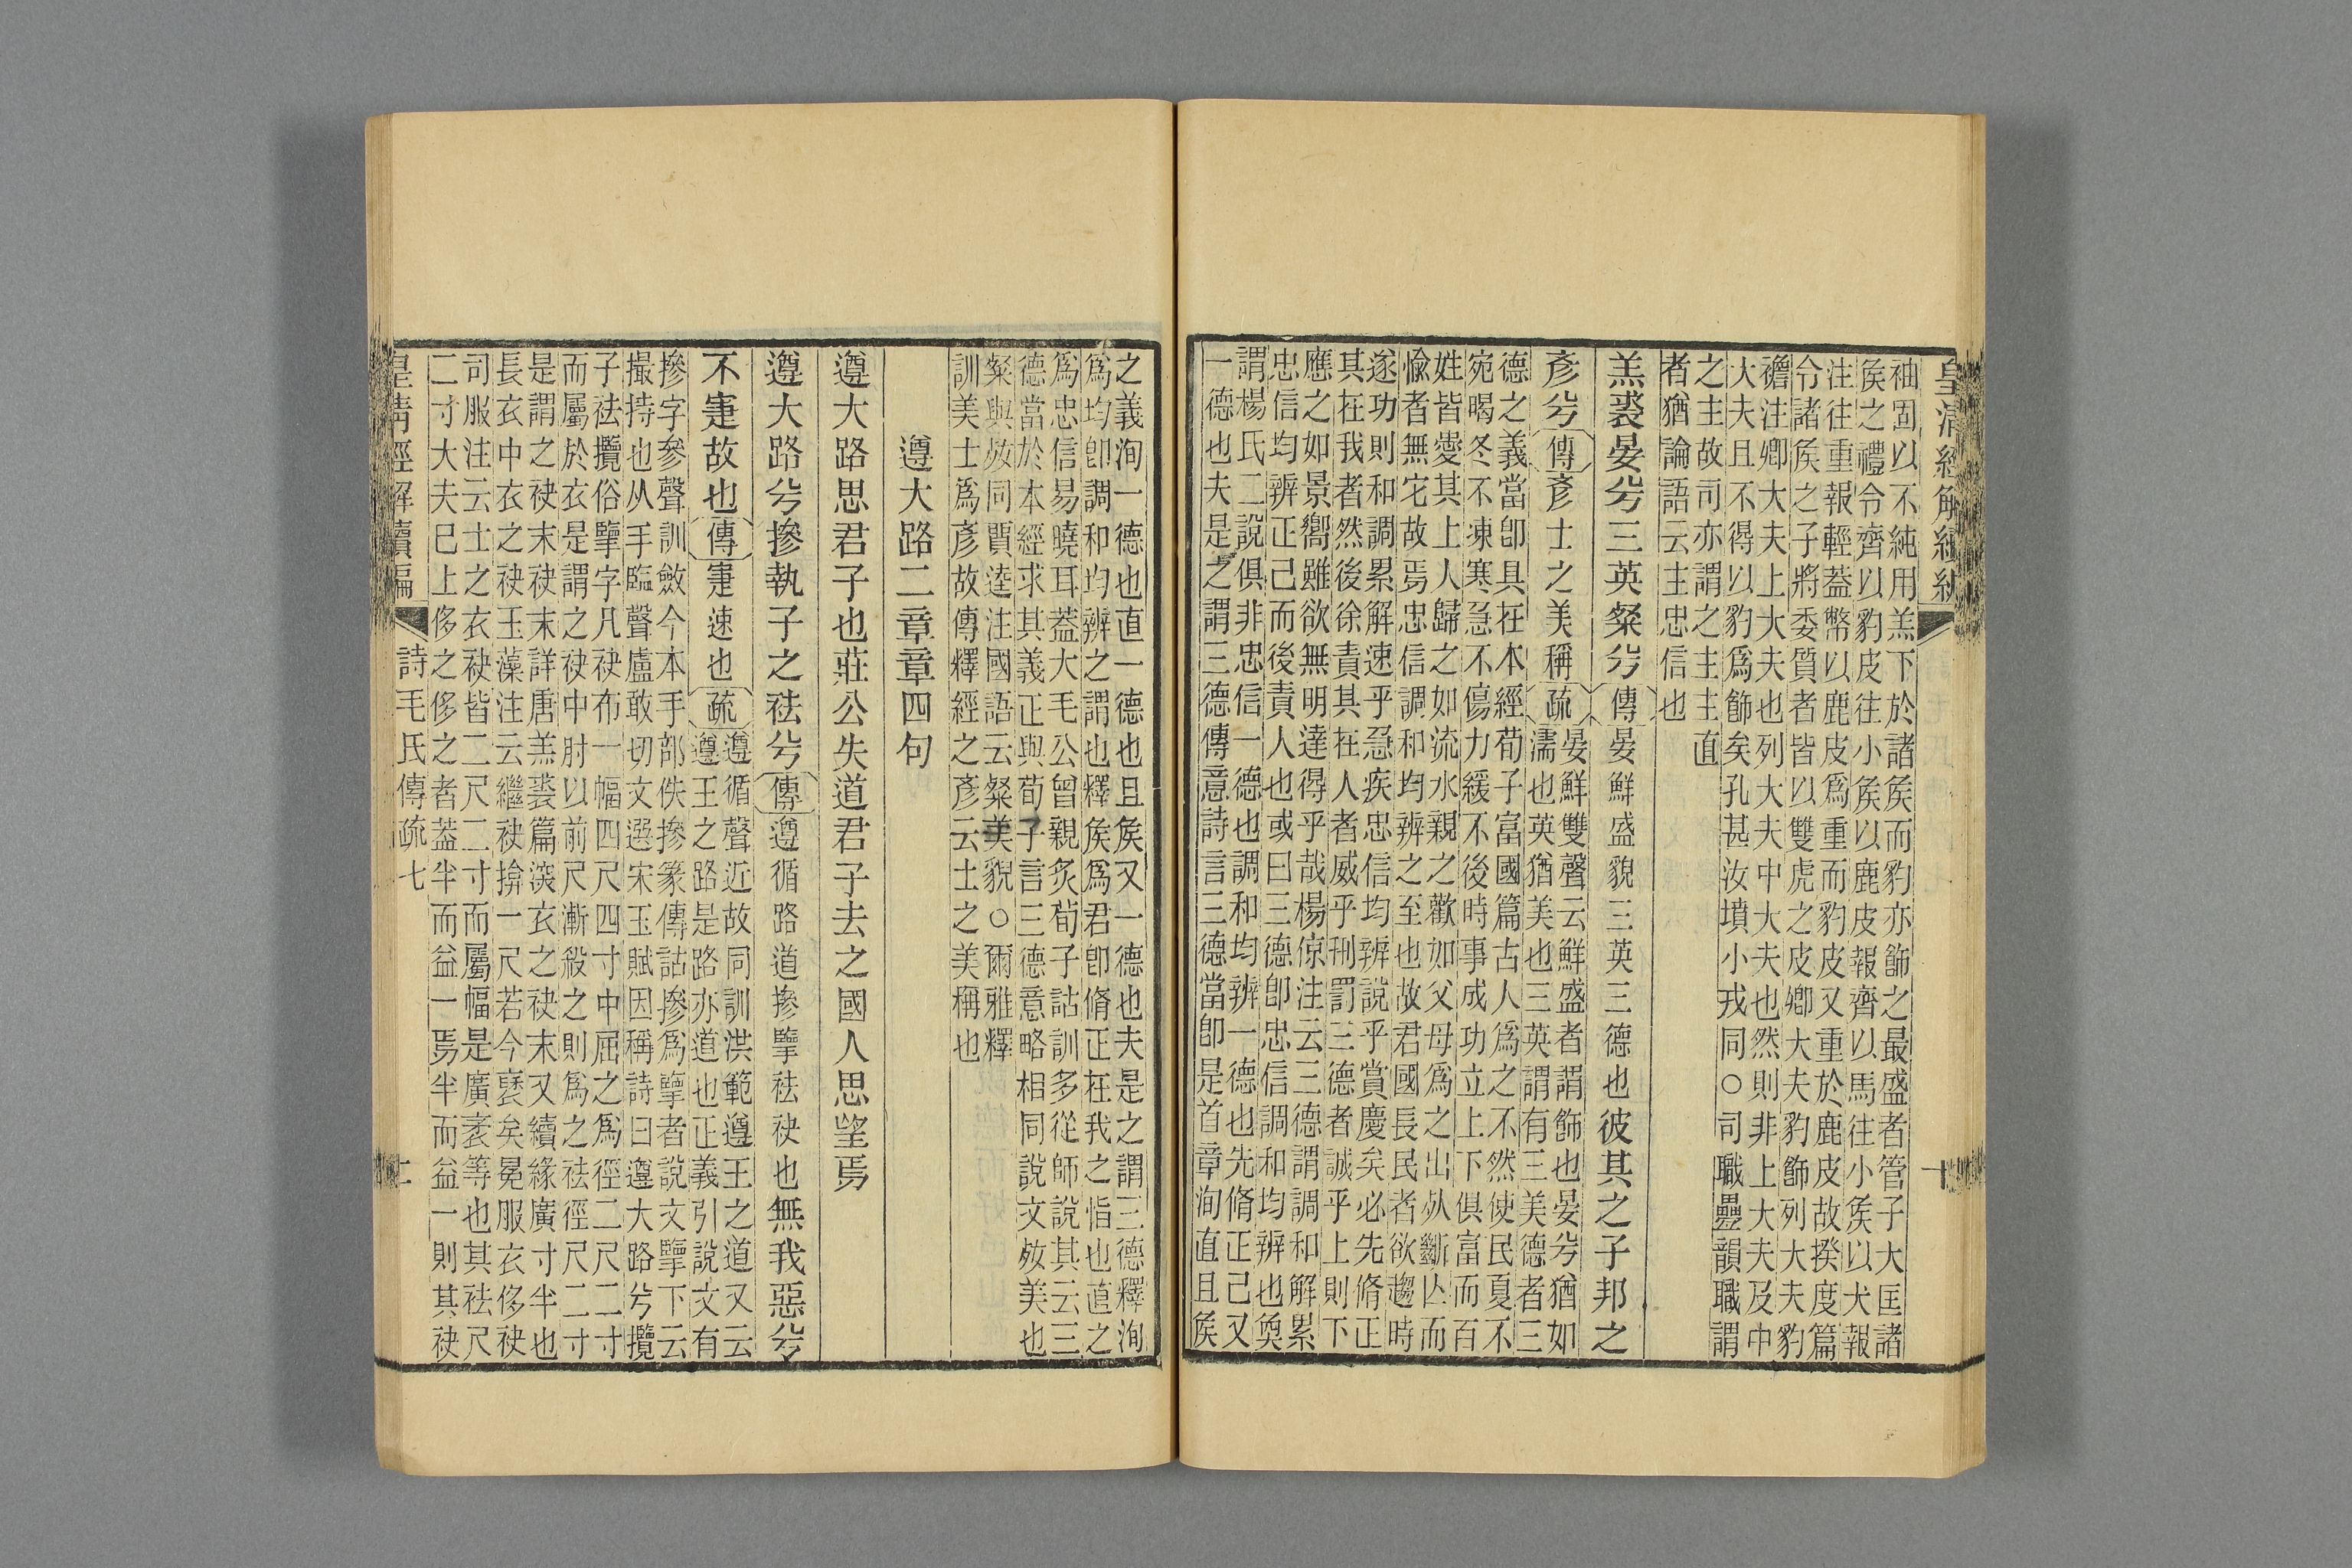 皇淸經解續編
袖固以不純用羔下於諸矦而豹亦飾之最盛者管子大匡諸
矦之禮令齊以豹皮往小矦以鹿皮報齊以馬往小矦以犬報
注往重報輕蓋幣以鹿皮爲重而豹皮又重於鹿皮故揆度篇
令諸矦之子將委質者皆以雙虎之皮卿大夫豹飾列大夫豹
襜注卿大夫上大夫也列大夫中大夫也然則非上大夫及中
大夫且不得以豹爲飾矣孔甚汝墳小戎同○司職疊韻職謂
之主故司亦謂之主主直
者猶論語云主忠信也
羔裘晏兮三英粲兮傳晏鮮盛貌三英三德也彼其之子邦之
彥兮傳彥士之美稱疏
晏鮮雙聲云鮮盛者謂飾也晏兮猶如
濡也英猶美也三英謂有三美德者三
德之義當卽具在本經荀子富國篇古人爲之不然使民夏不
宛暍冬不凍寒急不傷力緩不後時事成功立上下俱富而百
姓皆愛其上人歸之如流水親之歡如父母爲之出死斷亾而
愉者無它故焉忠信調和均辨之至也故君國長民者欲趨時
遂功則和調累解速乎急疾忠信均辨說乎賞慶矣必先脩正
其在我者然後徐責其在人者威乎刑罰三德者誠乎上則下
應之如景嚮雖欲無明達得乎哉楊倞注云三德謂調和解累
忠信均辨正己而後責人也或曰三德卽忠信調和均辨也奐
謂楊氏二說俱非忠信一德也調和均辨一德也先脩正己又
一德也夫是之謂三德傳意詩言三德當卽是首章洵直且矦
之義洵一德也直一德也且矦又一德也夫是之謂三德釋洵
爲均卽調和均辨之謂也釋矦爲君卽脩正在我之恉也直之
爲忠信易曉耳蓋大毛公曾親炙荀子詁訓多從師說其云三
德當於本經求其義正與荀子言三德意略相同說文㛑美也
粲與㛑同賈逵注國語云粲美貌○爾雅釋
訓美士爲彥故傳釋經之彥云士之美稱也
遵大路二章章四句
遵大路思君子也莊公失道君子去之國人思望焉
遵大路兮摻執子之袪兮傳遵循路道摻擥袪袂也無我惡兮
不寁故也傳寁速也疏
遵循聲近故同訓洪範遵王之道又云
遵王之路是路亦道也正義引說文有
摻字參聲訓斂今本手部佚摻篆傳詁摻爲擥者說文擥下云
撮持也从手臨聲盧敢切文選宋玉賦因稱詩曰遵大路兮攬
子袪攬俗擥字凡袂布一幅四尺四寸中屈之爲徑二尺二寸
而屬於衣是謂之袂中肘以前尺漸殺之則爲之袪徑尺二寸
是謂之袂末袂末詳唐羔裘篇深衣之袂末又續緣廣寸半也
長衣中衣之袂玉藻注云繼袂揜一尺若今褎矣冕服衣侈袂
司服注云士之衣袂皆二尺二寸而屬幅是廣袤等也其袪尺
二寸大夫已上侈之侈之者蓋半而益一焉半而益一則其袂
皇淸經解續編
詩毛氏傳疏七